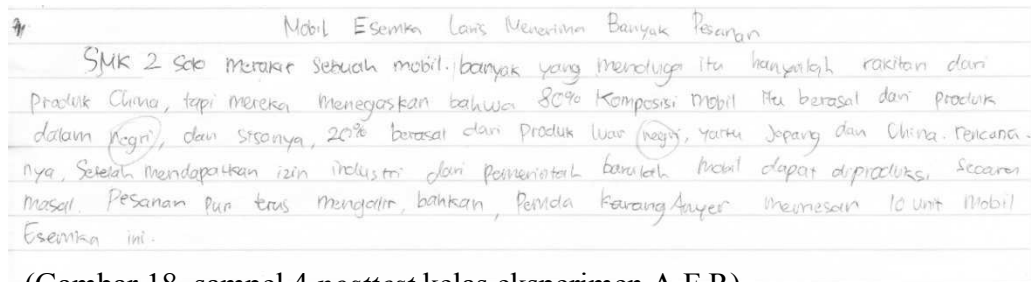 Mobil Esemka Laris Menerima Banyak Pesanan
SMK 2 Solo merakit sebuah mobil. banyak yang menduga itu hanyalah rakitan dari
Produk China, tapi mereka menegaskan bahwa 80% Komposisi mobil itu berasal dari produk
dalam negri, dan sisanya, 20% berasal dari Produk luar negri, yaitu Jepang dan China. rencana-
nya, Setelah mendapatkan izin industri dari pemerintah barulah mobil dapat diproduksi secara
masal. Pesanan pun terus mengalir, bahkan, Pemda Karang Anyer memesan 10 unit Mobil
Esemka ini.
(Gambar 18. sampel 4 posttest kelas eksperimen A.F.R)